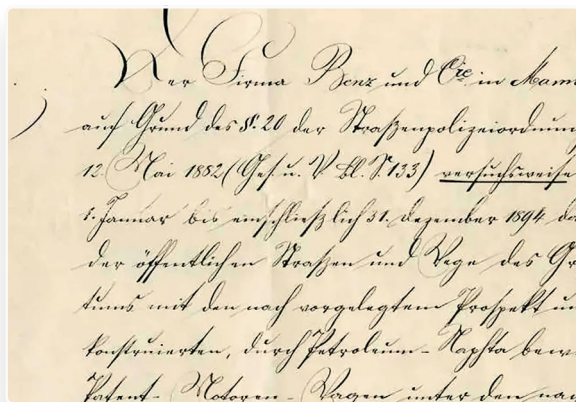 Der Firma Benz und Cie in Mann
auf Grund des §. 20 der Straßenpolizeiordnun
12. Mai 1882 (Ges. u. V. Bl. S. 133) versuchsweise
1. Januar bis einschließlich 31. Dezember 1894 d
der öffentlichen Straßen und Wege des Gr
tums mit den nach vorgelegtem Prospekt u
konstruierten, durch Petroleum-Naphta bew
Patent-Motoren-Wagen unter den nac